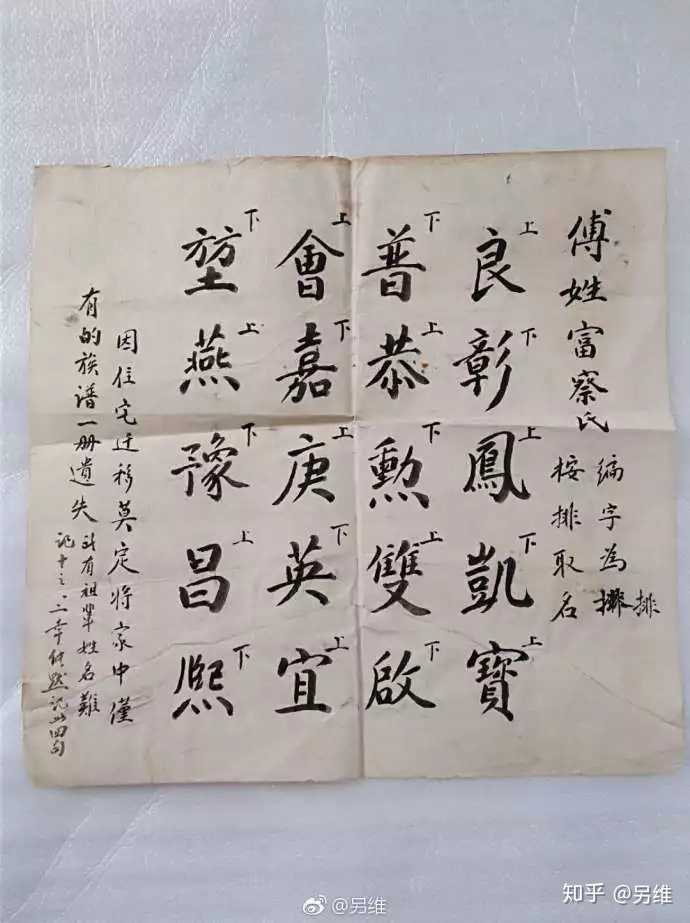 傅姓富察氏
編字為排
按排取名
良上彰下鳳上凱下寶上
普下恭上勳下雙上啟下
會上嘉下庚上英下宜上
堃下燕上豫下昌上熙下
因住宅迁移莫定将家中僅
有的族谱一册遗失所有祖輩姓名難
记十之二幸记此四句
知乎 @另维
@另维